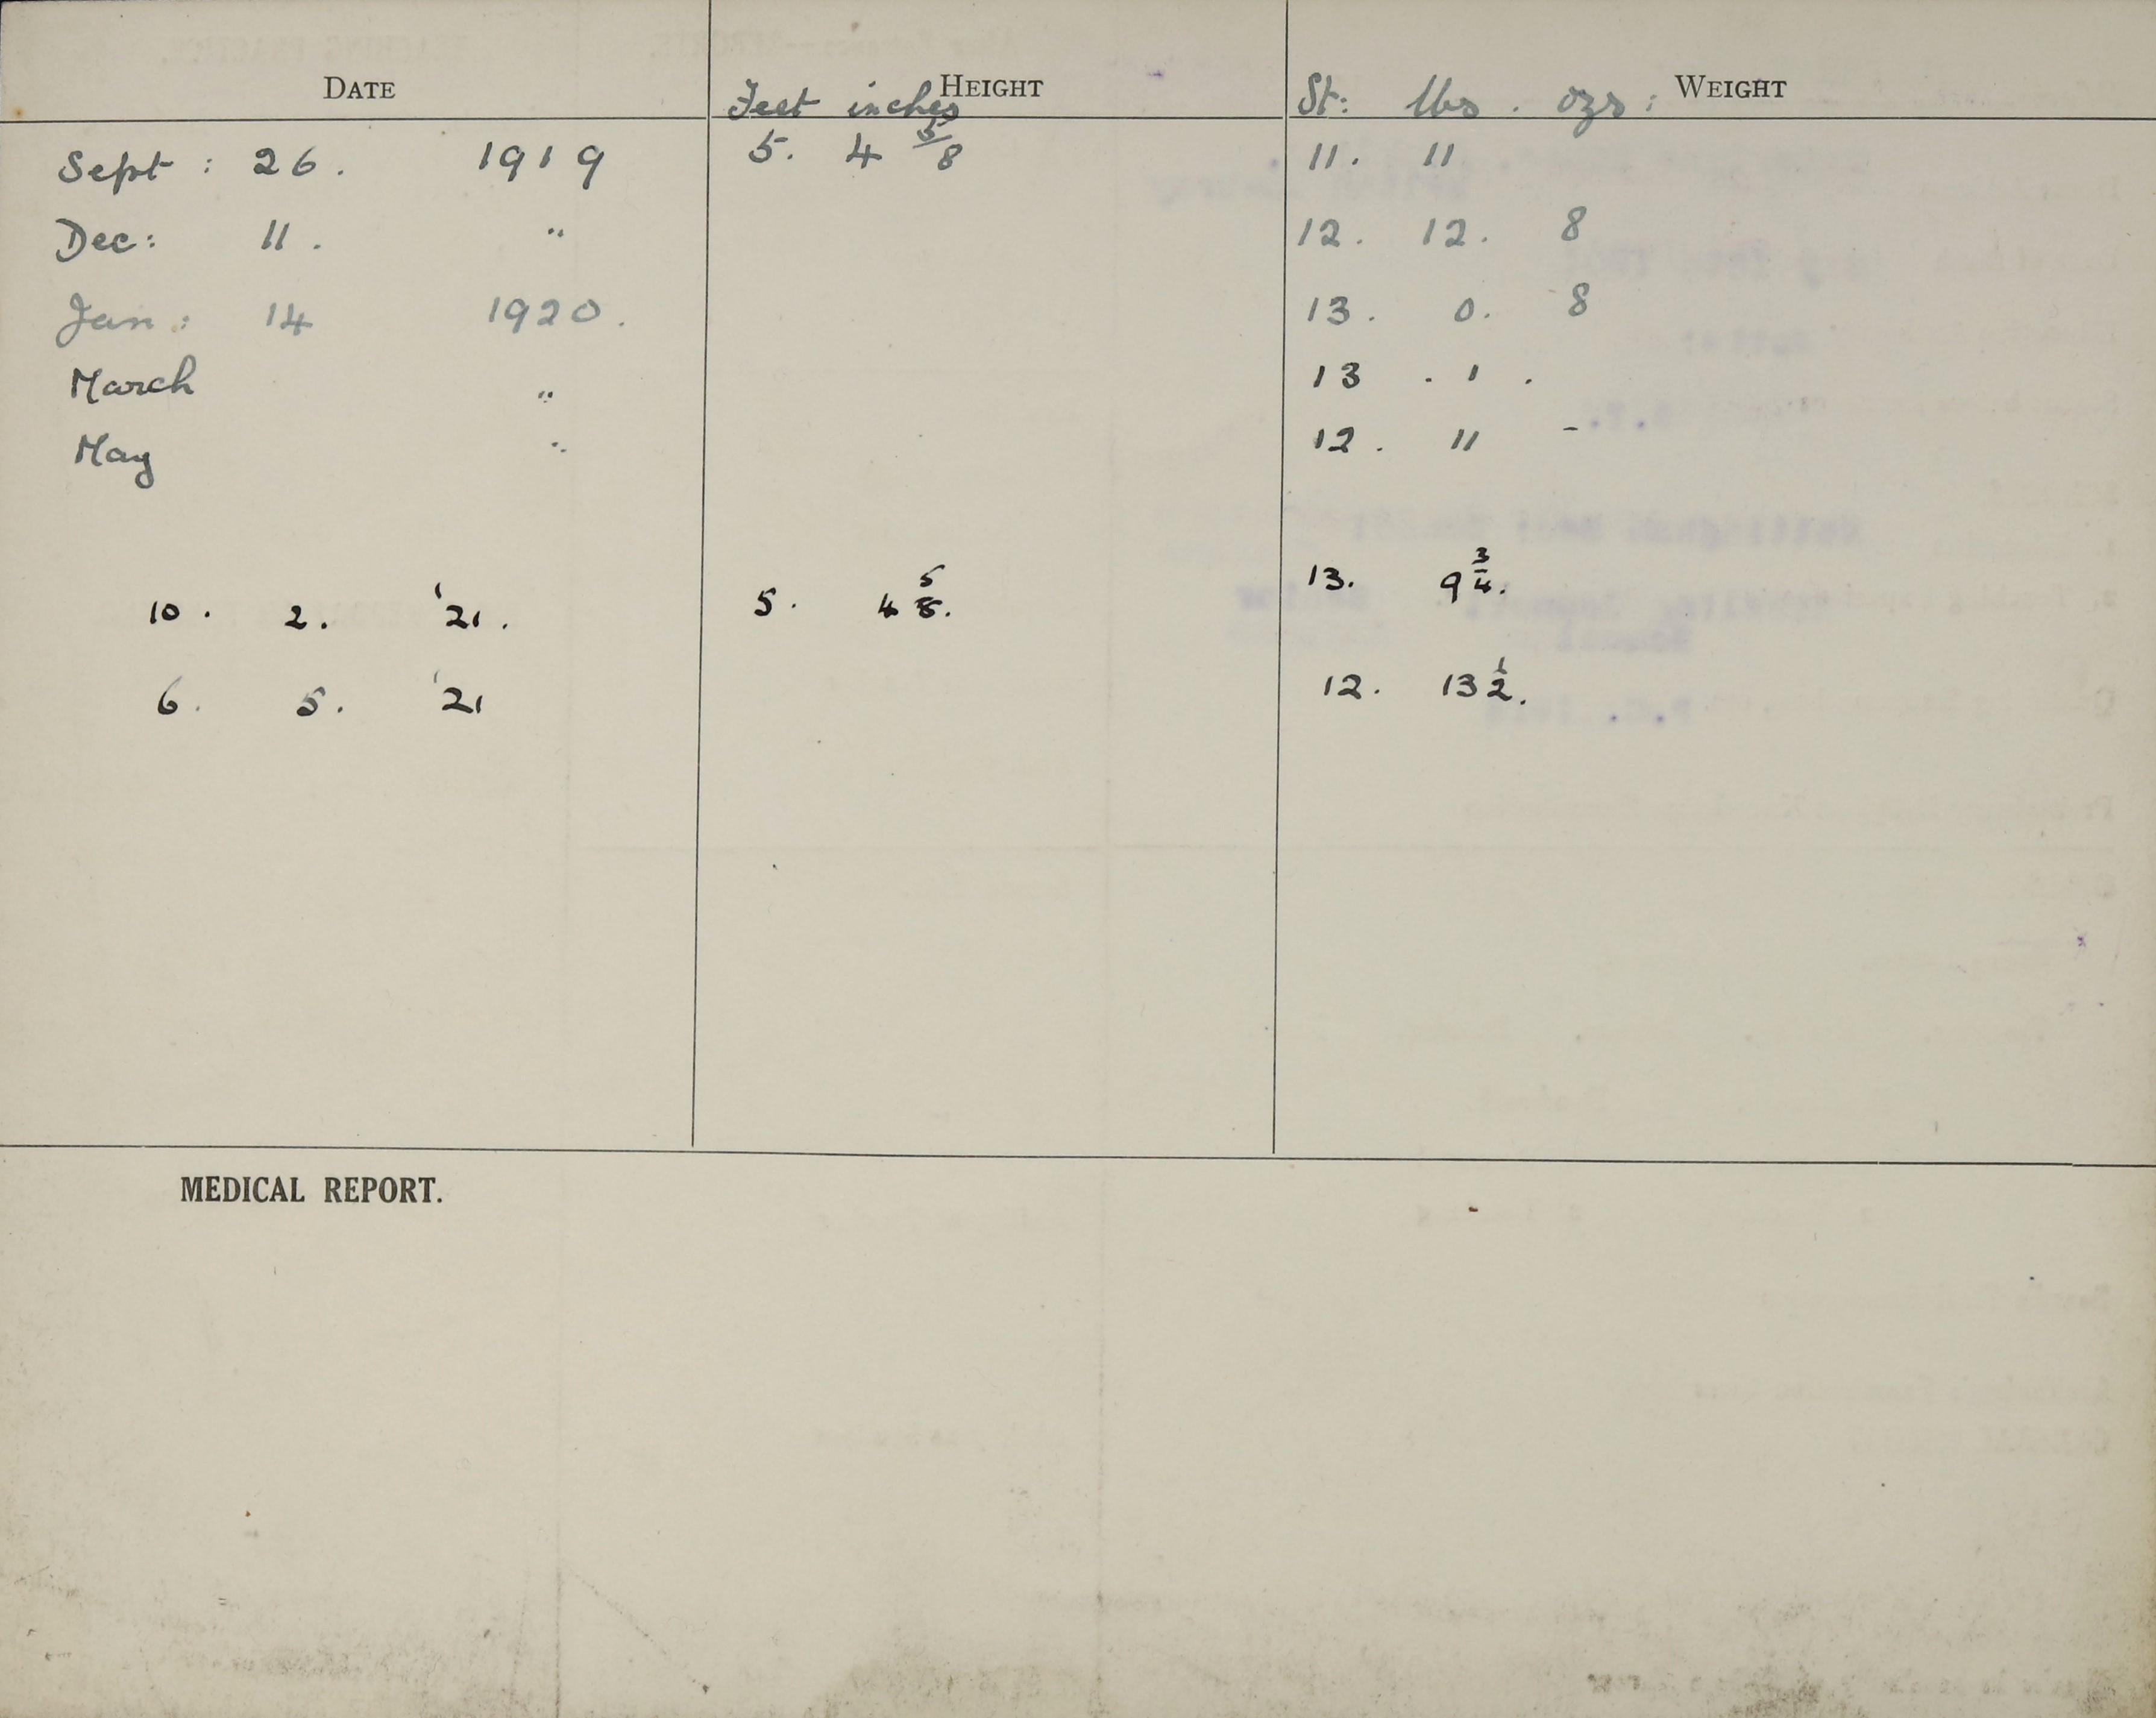 DATE HEIGHT WEIGHT
Feet inches St: lbs. ozs:
Sept: 26. 1919 5. 4 5/8 11. 11
Dec: 11. " 12. 12. 8
Jan: 14 1920. 13. 0. 8
March " 13. 1.
May " 12. 11 -
10. 2. '21. 5. 4 5/8. 13. 9 3/4.
6. 5. '21 12. 13 1/2.
MEDICAL REPORT.